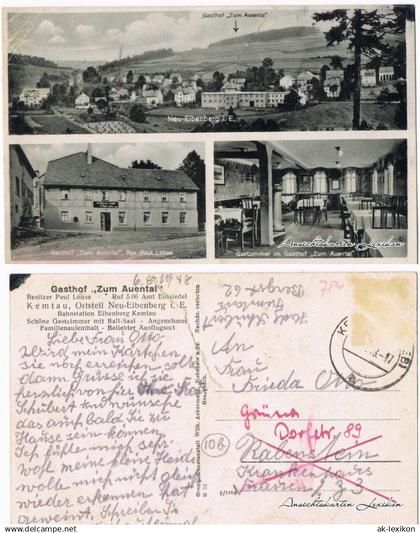 Gasthof „Zum Auental"
Neu-Eibenberg i. E.
Gasthof „Zum Auental", Bes. Paul Lohse
Gastzimmer im Gasthof „Zum Auental"
Ansichtskarten Lexikon
6.5.1948
Gasthof „Zum Auental"
Besitzer Paul Lohse - Ruf 566 Amt Einsiedel
Kemtau, Ortsteil Neu-Eibenberg i. E.
Bahnstation Eibenberg Kemtau
Schöne Gastzimmer mit Ball-Saal - Angenehmer
Familienaufenthalt - Beliebter Ausflugsort
Liebe Frau Otto
Wird mein Kärtchen
sie noch erreichen sollte
dann Grüsse ich sie
herzlich von hier Frau
Schubert und wünsche
das auch bald Sie zu
Hause sein können
Ich fühle mich sehr
wohl meine kleine Heide
wollte mich nicht gleich
wieder erkennen hat
geweint. Schreiben Sie
An
Frau
Frieda Otto
Grüna
Dorfstr. 89
Rabenstein
Krankenhaus
Frauen 3
10B
Ansichtskarten Lexikon
© www.ak-lexikon.de
ak-lexikon.com